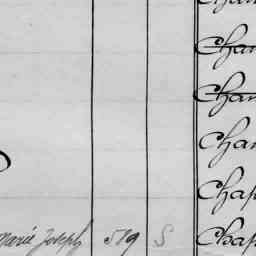 Chan
Chan
Chan
Chan
Chap
Marie Joseph 519 S Chap